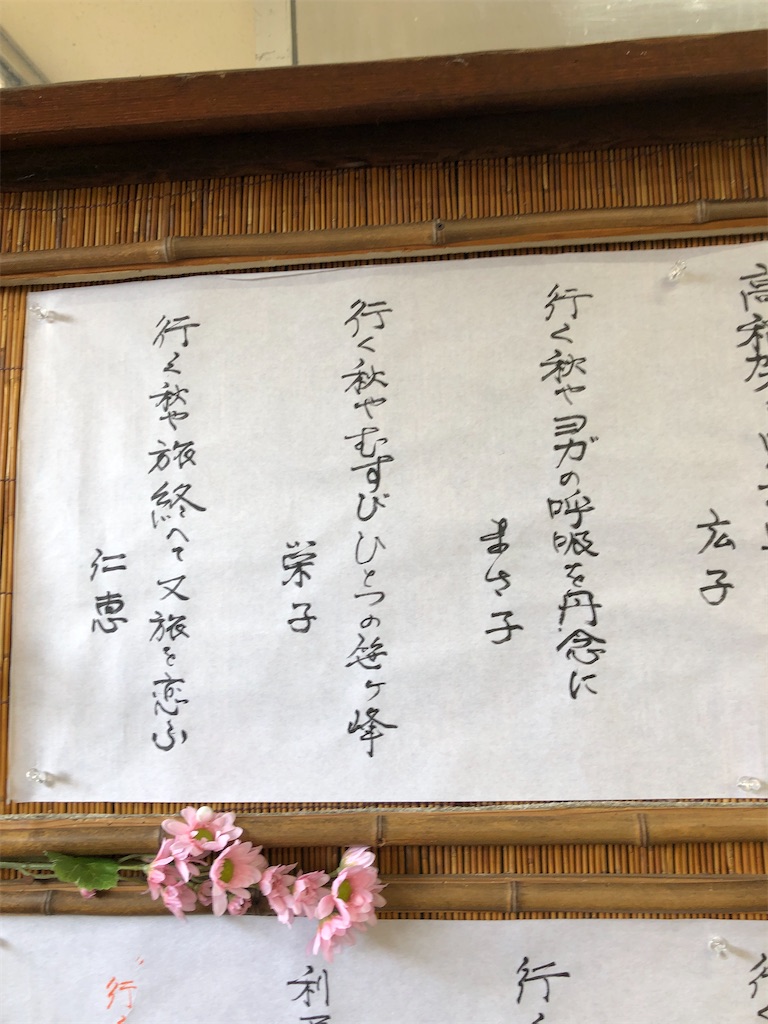 広子
行く秋やヨガの呼吸を丹念に
まさ子
行く秋やむすびひとつの笹ヶ峰
栄子
行く秋や旅終へて又旅を恋ふ
仁恵
行
行
利
行く